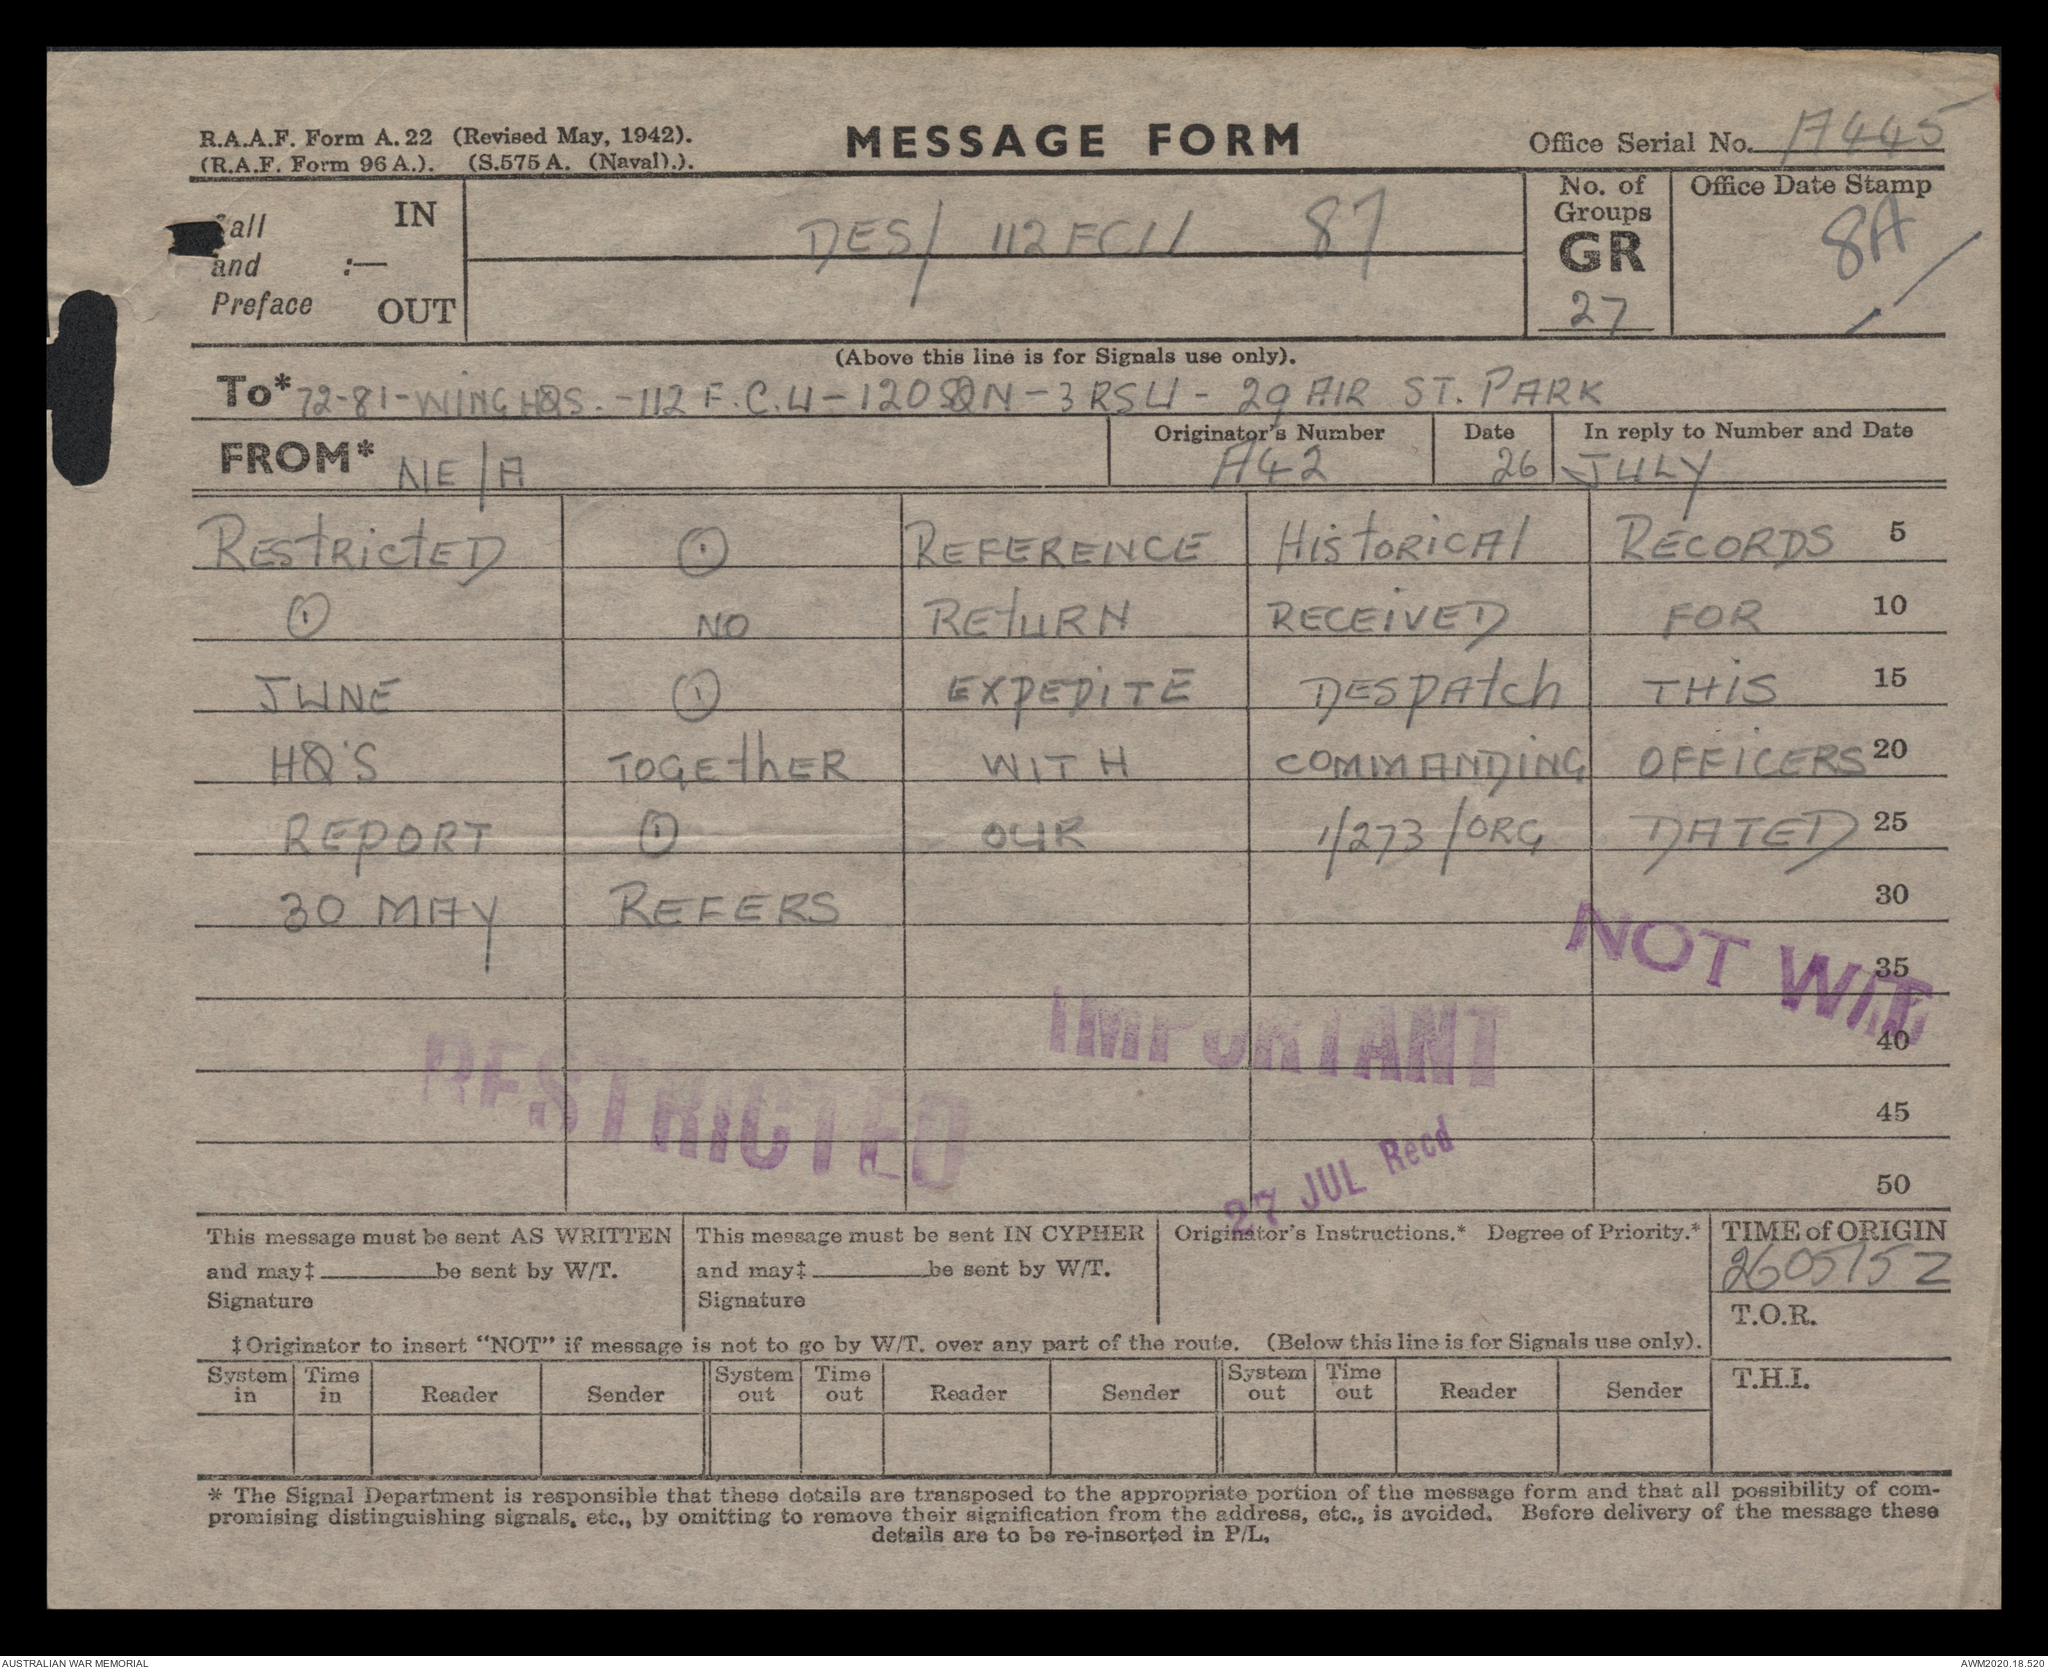 R.A.A.F. Form A. 22 (Revised May, 1942).
(R.A.F. Form 96 A.). (S.575 A. (Naval).).
MESSAGE FORM
Office Serial No. A445
Call and Preface :— IN OUT
DES/ 112 FCU 87
No. of Groups GR 27
Office Date Stamp
8A
(Above this line is for Signals use only).
To* 72-81-WING HQS. -112 F.C.U - 120 SQN - 3 RSU - 29 AIR ST. PARK
FROM* NE/A
Originator's Number A42
Date 26
In reply to Number and Date JULY
RESTRICTED ① REFERENCE HISTORICAL RECORDS 5
① NO RETURN RECEIVED FOR 10
JUNE ① EXPEDITE DESPATCH THIS 15
HQ'S TOGETHER WITH COMMANDING OFFICERS 20
REPORT ① OUR 1/273/ORG DATED 25
30 MAY REFERS 30
NOT W/T
35
IMPORTANT
40
RESTRICTED
45
27 JUL Recd
50
This message must be sent AS WRITTEN
and may‡ be sent by W/T.
Signature
This message must be sent IN CYPHER
and may‡ be sent by W/T.
Signature
Originator's Instructions.* Degree of Priority.*
TIME of ORIGIN
260515Z
T.O.R.
‡Originator to insert "NOT" if message is not to go by W/T. over any part of the route. (Below this line is for Signals use only).
System in Time in Reader Sender System out Time out Reader Sender System out Time out Reader Sender
T.H.I.
* The Signal Department is responsible that these details are transposed to the appropriate portion of the message form and that all possibility of com-
promising distinguishing signals, etc., by omitting to remove their signification from the address, etc., is avoided. Before delivery of the message these
details are to be re-inserted in P/L,
AUSTRALIAN WAR MEMORIAL
AWM2020.18.520